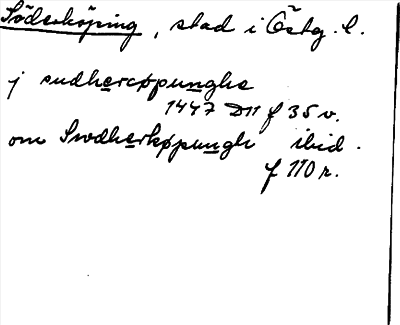 Söderköping, stad i Östg. l.
j sudhercøpunghe
1447 D11 f 35 v.
om Swdherkøpungh ibid.
f 110 r.